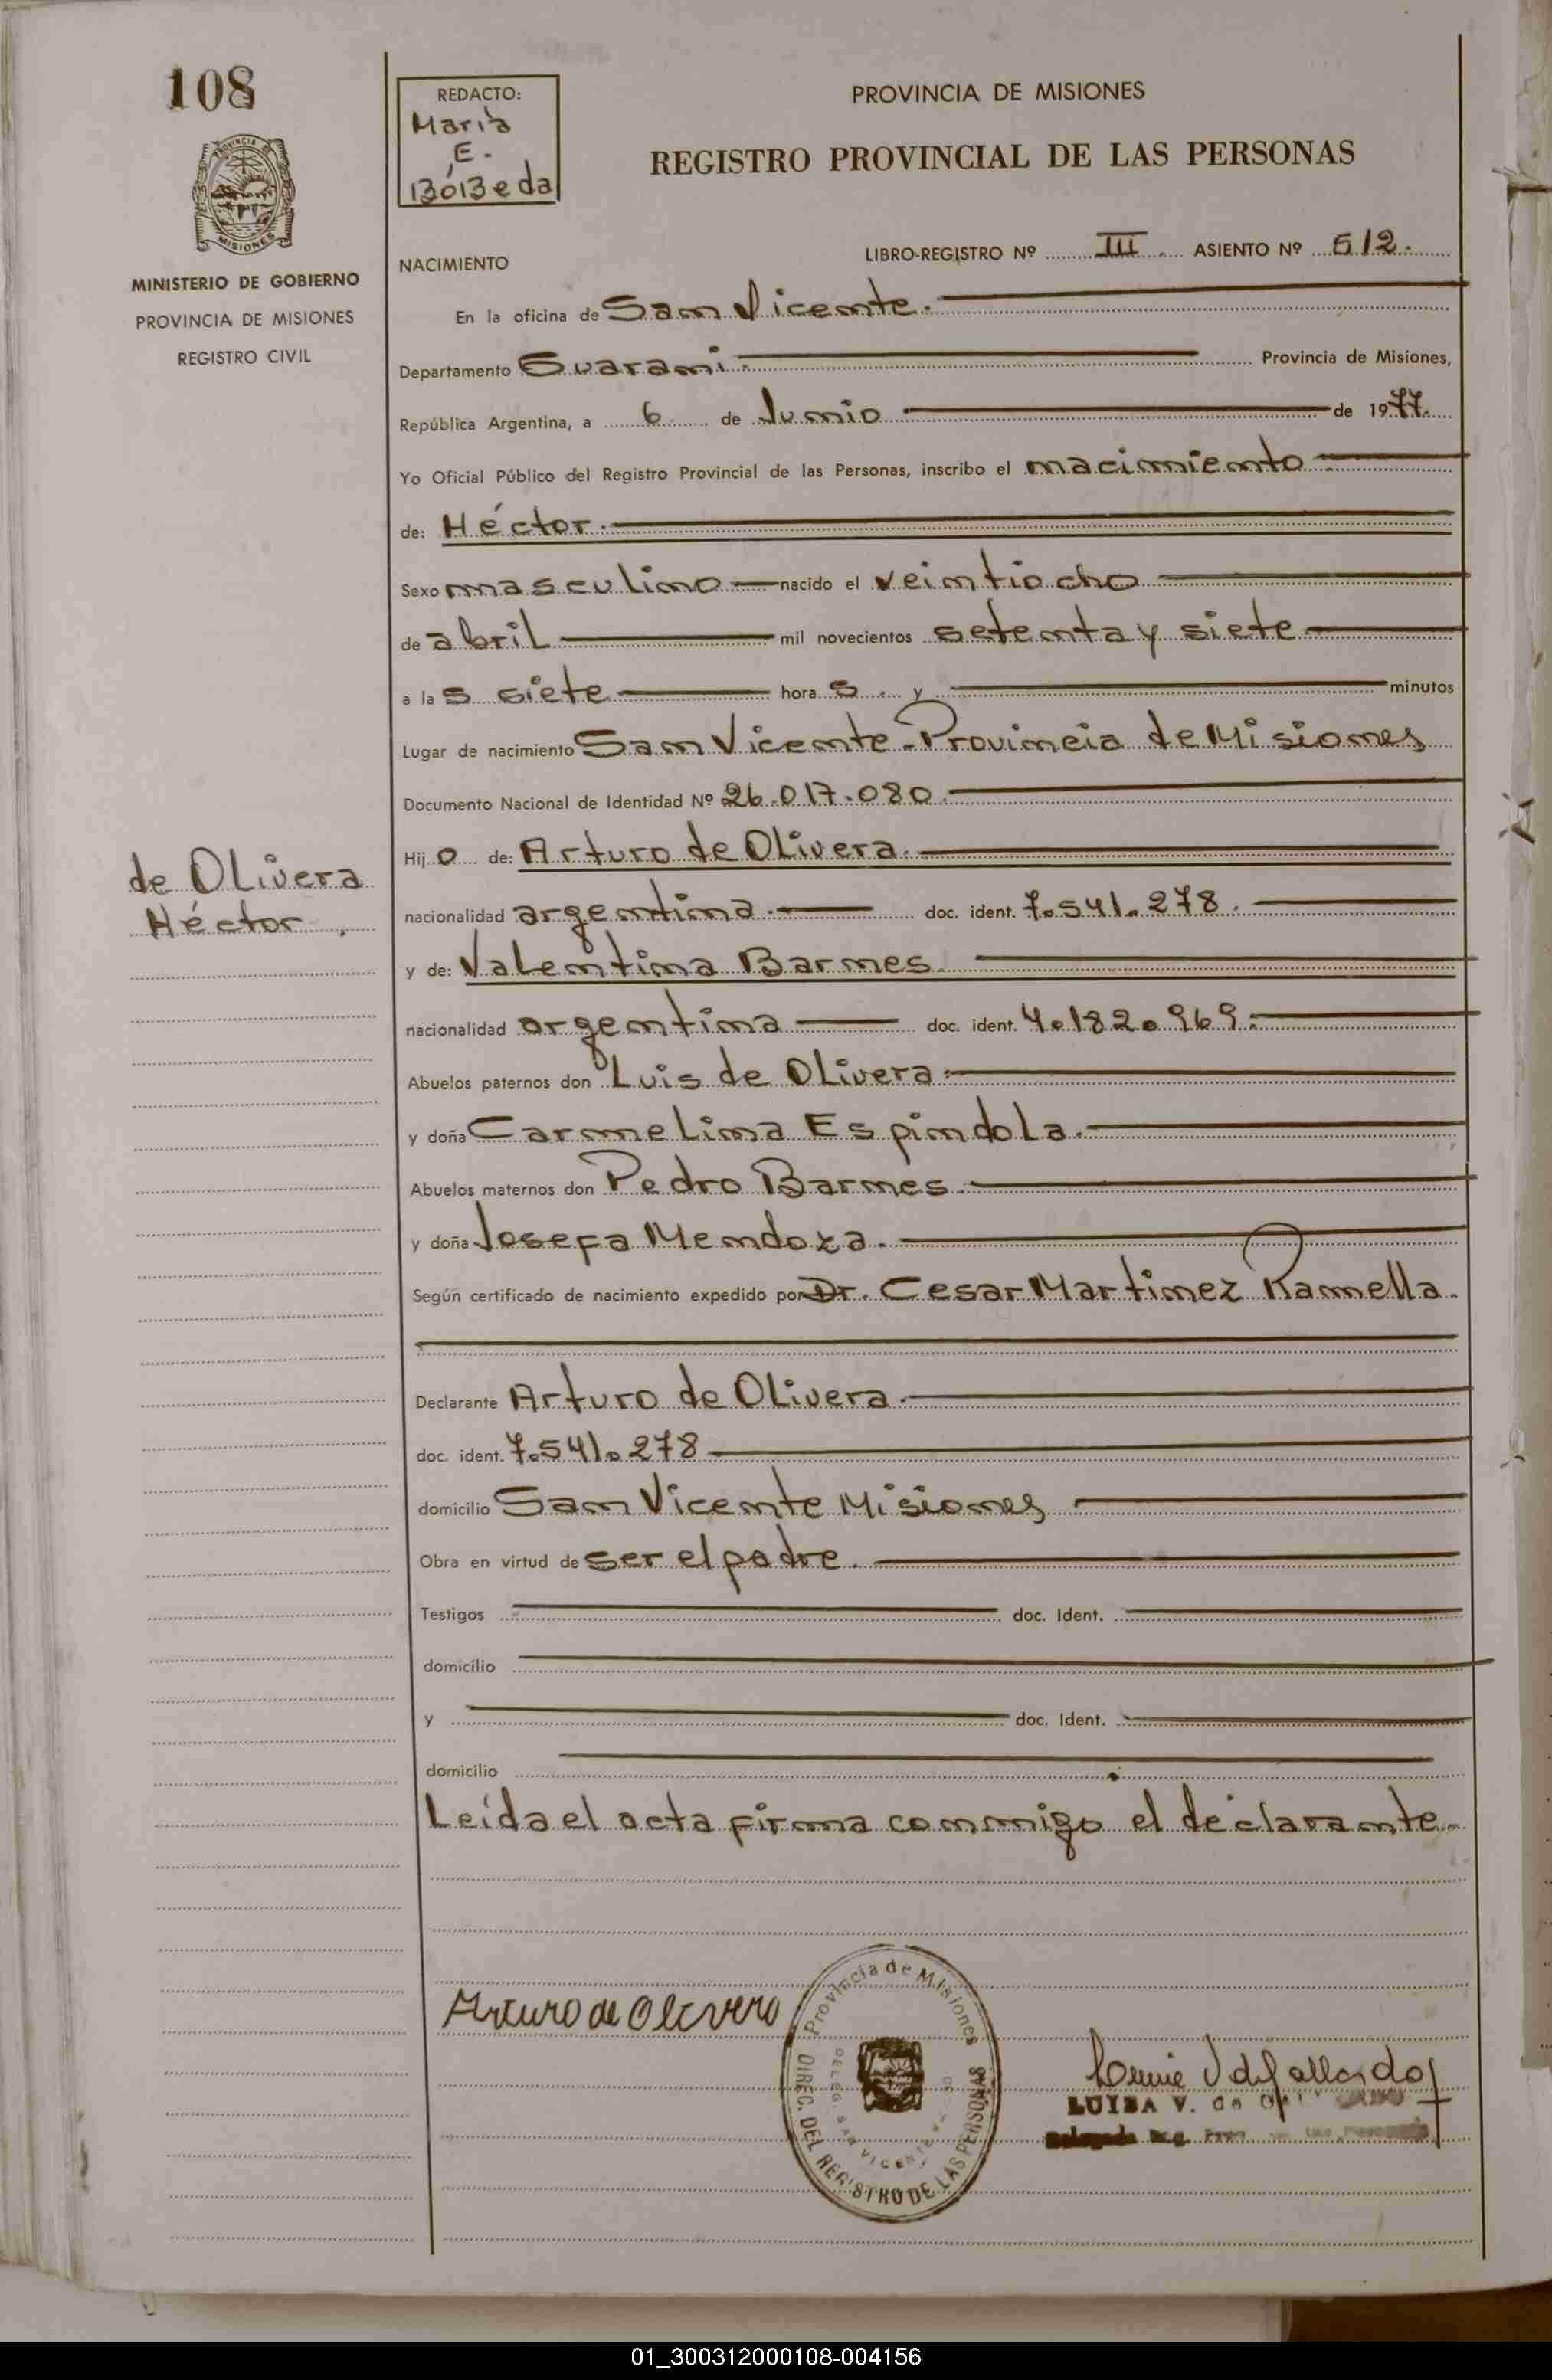 108
PROVINCIA DE
MISIONES
MINISTERIO DE GOBIERNO
PROVINCIA DE MISIONES
REGISTRO CIVIL
REDACTO:
María
E.
BóBeda
PROVINCIA DE MISIONES
REGISTRO PROVINCIAL DE LAS PERSONAS
NACIMIENTO
LIBRO-REGISTRO Nº III. ASIENTO Nº 512.
En la oficina de San Vicente.
Departamento Guarani. Provincia de Misiones,
República Argentina, a 6 de Junio de 1977.
Yo Oficial Público del Registro Provincial de las Personas, inscribo el nacimiento
de: Héctor.
Sexo masculino nacido el veintiocho
de abril mil novecientos setenta y siete
a las siete horas y minutos
Lugar de nacimiento San Vicente - Provincia de Misiones
Documento Nacional de Identidad Nº 26.017.080.
Hijo de: Arturo de Olivera.
de Olivera
Héctor.
nacionalidad argentina. doc. ident. 7.541.278.
y de: Valentina Barnes.
nacionalidad argentina doc. ident. 4.182.969.
Abuelos paternos don Luis de Olivera.
y doña Carmelina Espindola.
Abuelos maternos don Pedro Barnes.
y doña Josefa Mendoza.
Según certificado de nacimiento expedido por Dr. Cesar Martinez Ramella.
Declarante Arturo de Olivera.
doc. ident. 7.541.278
domicilio San Vicente Misiones
Obra en virtud de ser el padre.
Testigos doc. Ident.
domicilio
y doc. Ident.
domicilio
Leída el acta firma conmigo el declarante.
Arturo de Olivera
Provincia de Misiones
DIREC. DEL REGISTRO DE LAS PERSONAS
DELEG. SAN VICENTE
LUISA V. de
01_300312000108-004156